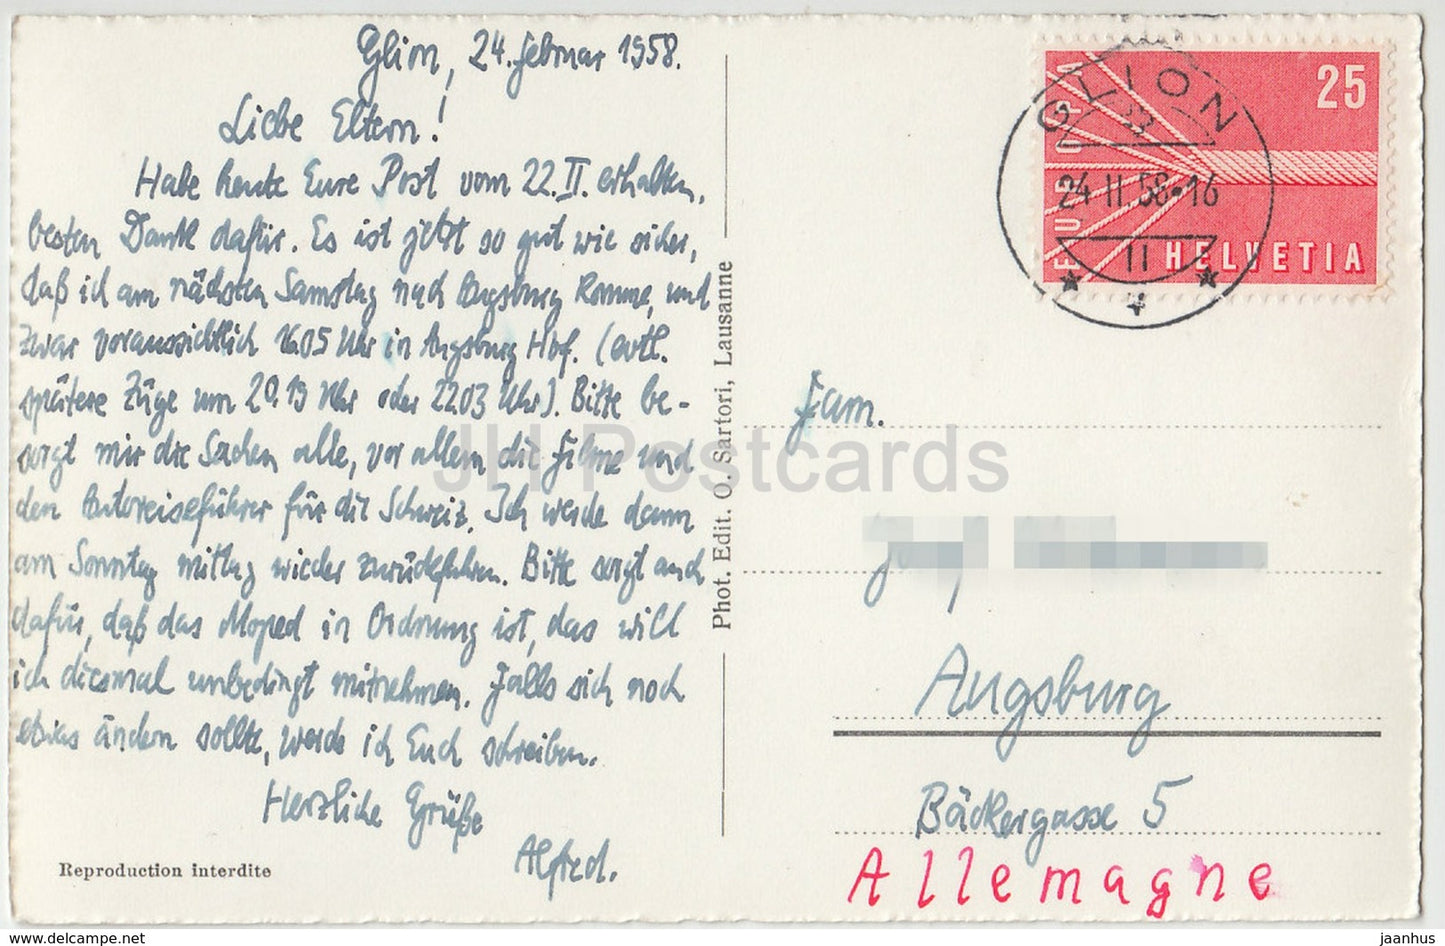 Glion, 24. Februar 1958.
Liebe Eltern!
Habe heute Eure Post vom 22.II. erhalten,
besten Dank dafür. Es ist jetzt so gut wie sicher,
daß ich am nächsten Samstag nach Augsburg komme, und
zwar voraussichtlich 16.05 Uhr in Augsburg Hbf. (evtl.
spätere Züge um 20.19 Uhr oder 22.03 Uhr). Bitte be-
sorgt mir die Sachen alle, vor allem die Filme und
den Autoreiseführer für die Schweiz. Ich werde dann
am Sonntag mittag wieder zurückfahren. Bitte sorgt auch
dafür, daß das Moped in Ordnung ist, das will
ich diesmal unbedingt mitnehmen. Falls sich noch
etwas ändern sollte, werde ich Euch schreiben.
Herzliche Grüße
Alfred.
Reproduction interdite
Phot. Edit. O. Sartori, Lausanne
EUROPA
25
HELVETIA
GLION
24 II.58-16
11
Fam.
Augsburg
Bäckergasse 5
Allemagne
JH Postcards
www.delcampe.net
jaanhus